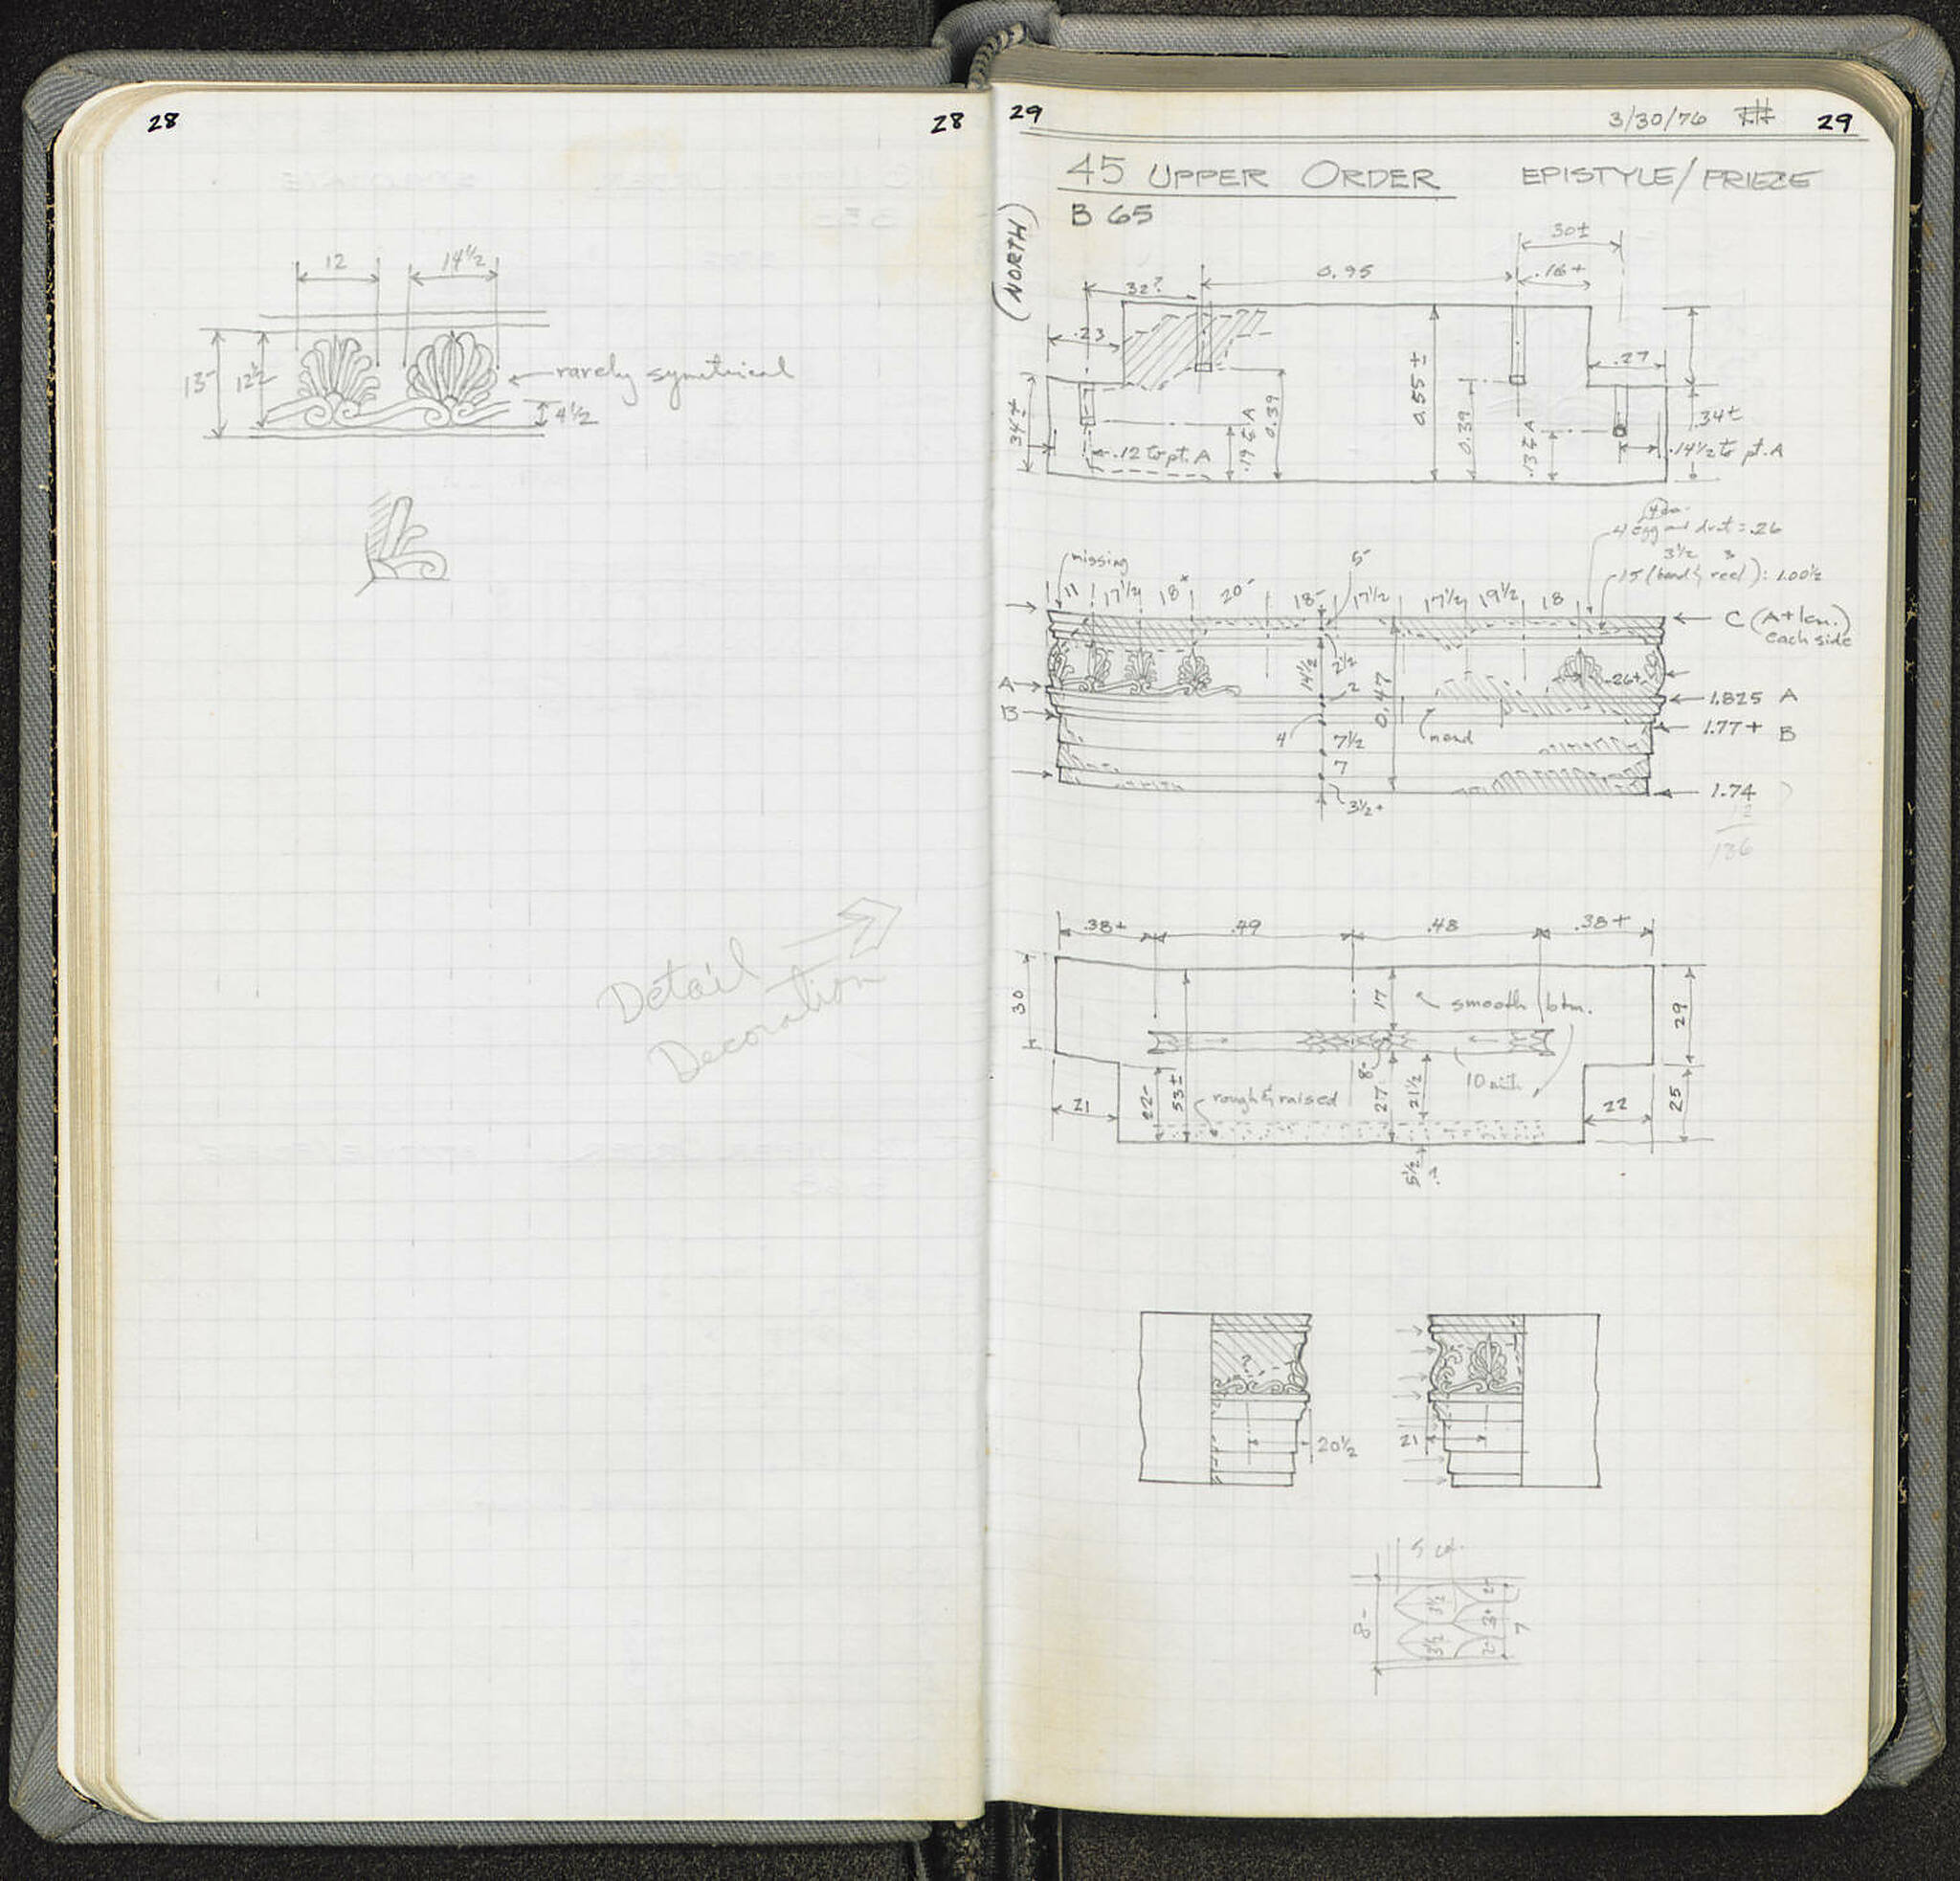 28
28
12
14½
13-
12½
rarely symetrical
4½
Detail
Decoration
29
3/30/76
29
45 UPPER ORDER EPISTYLE/FRIEZE
B 65
(NORTH)
30±
0.95
.16+
32?
.23
.27
0.55±
34±
0.39
0.39
.34±
.19 ¢ A
.13 ¢ A
.12 to pt. A
.14½ to pt. A
4 egg and dart = .26
3½ 3
15 (bead & reel): 1.00½
missing
5-
11 17½ 18+ 20- 18- 17½ 17½ 19½ 18
C (A+1cm.)
each side
14½
2½
2
0.47
.26+
A
1.825 A
B
1.77+ B
4
7½
mend
7
3½+
1.74
136
.38+ .49 .48 .38+
30
17
smooth btm.
29
8-
10 mil.
22-
53±
rough & raised
27
21½
21
22
25
5½
20½
21
8-
3½
3½
2-
3+
2-
7